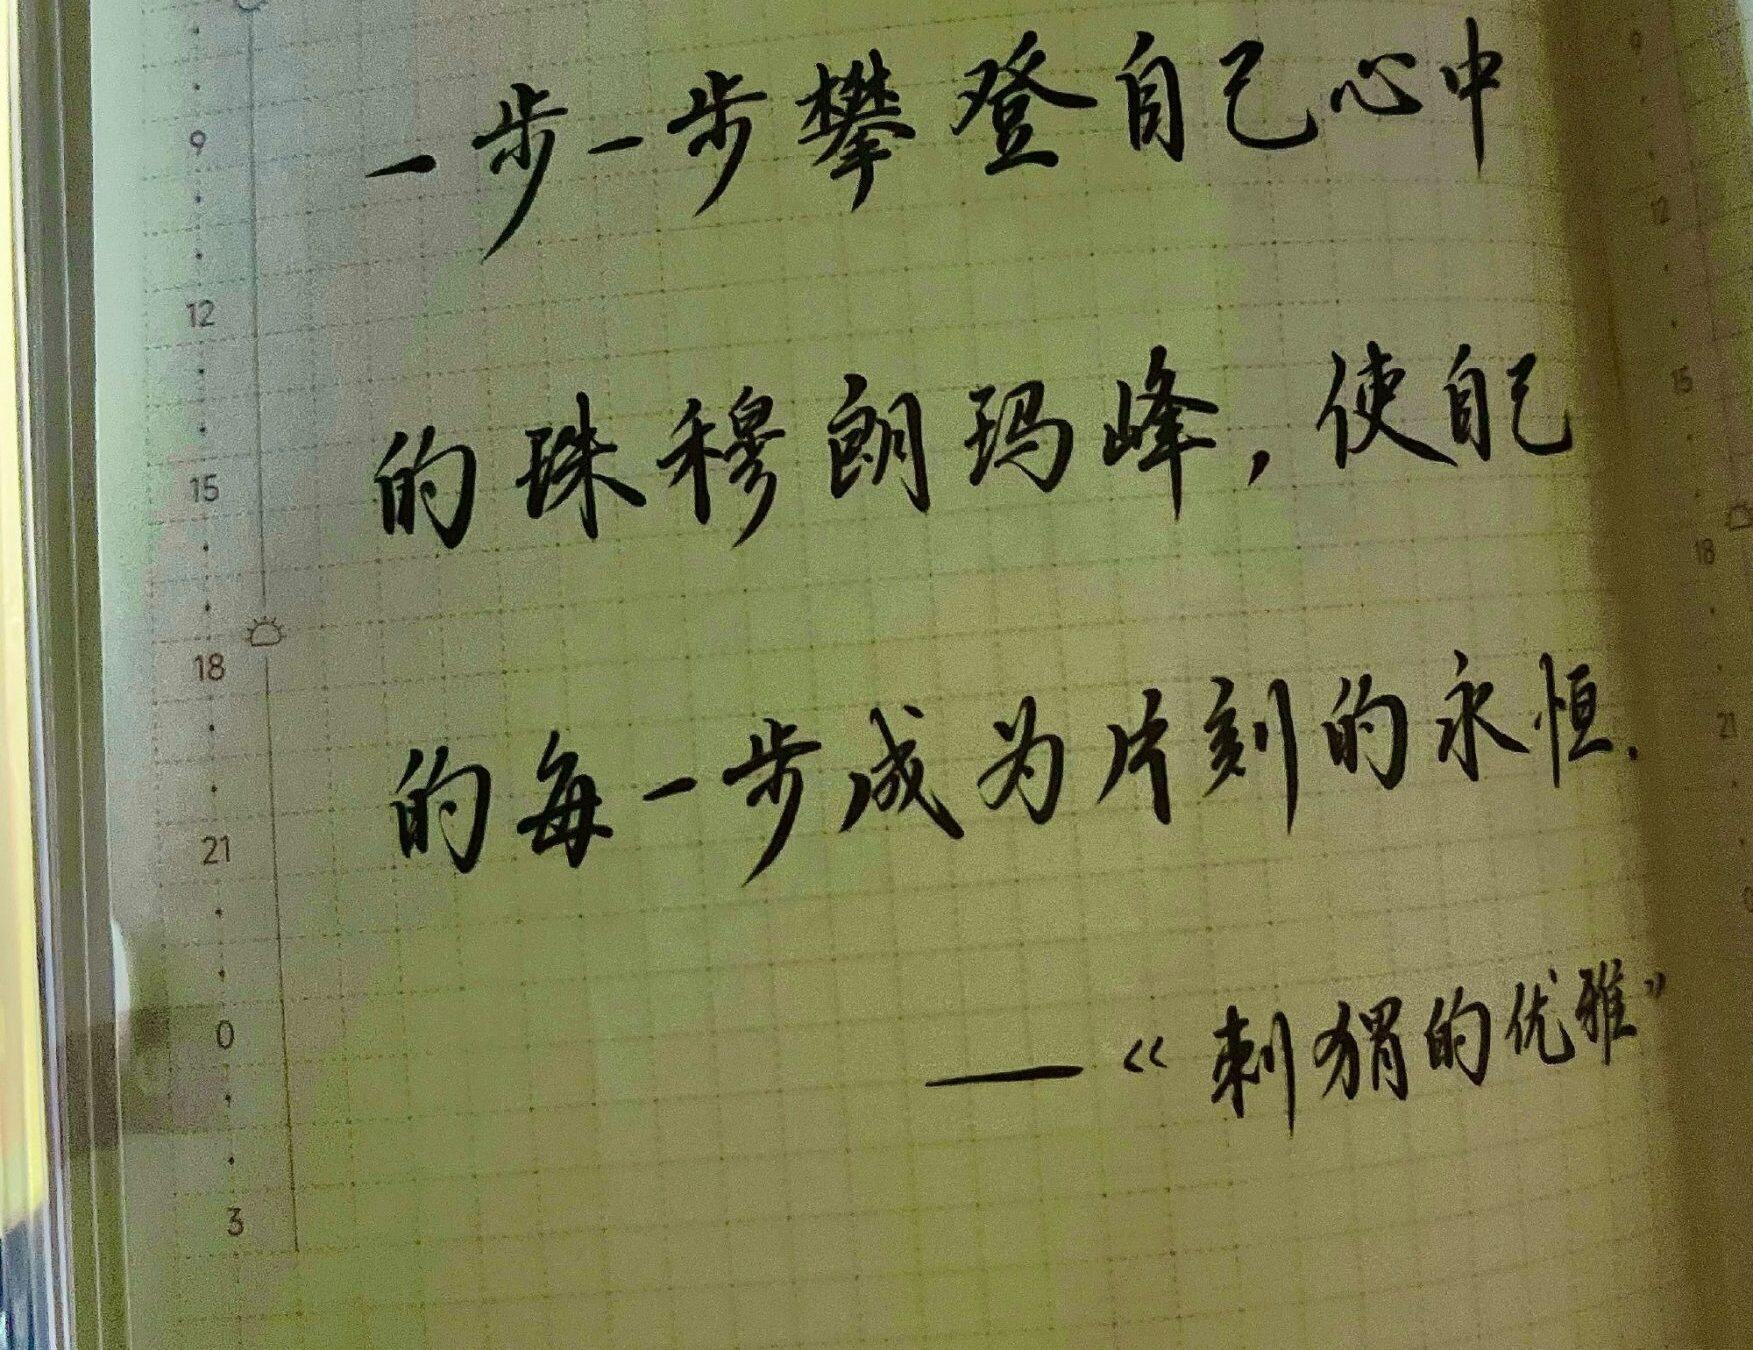 一步一步攀登自己心中
的珠穆朗玛峰,使自己
的每一步成为片刻的永恒.
——《刺猬的优雅》
9
12
15
18
21
0
3
9
12
15
18
21